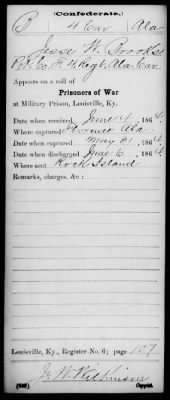 (Confederate.)
B 4 Cav Ala
Jesse W. Brooks
Pvt, Co. F. 4 Regt, Ala. Cav.
Appears on a roll of
Prisoners of War
at Military Prison, Louisville, Ky.
Date when received June 4, 1864.
Where captured Florence Ala.
Date when captured May 31, 1864
Date when discharged June 6, 1864.
Where sent Rock Island
Remarks, charges, &c.:
Louisville, Ky., Register No. 6; page 127
J. W. Wilkinson
Copyist.